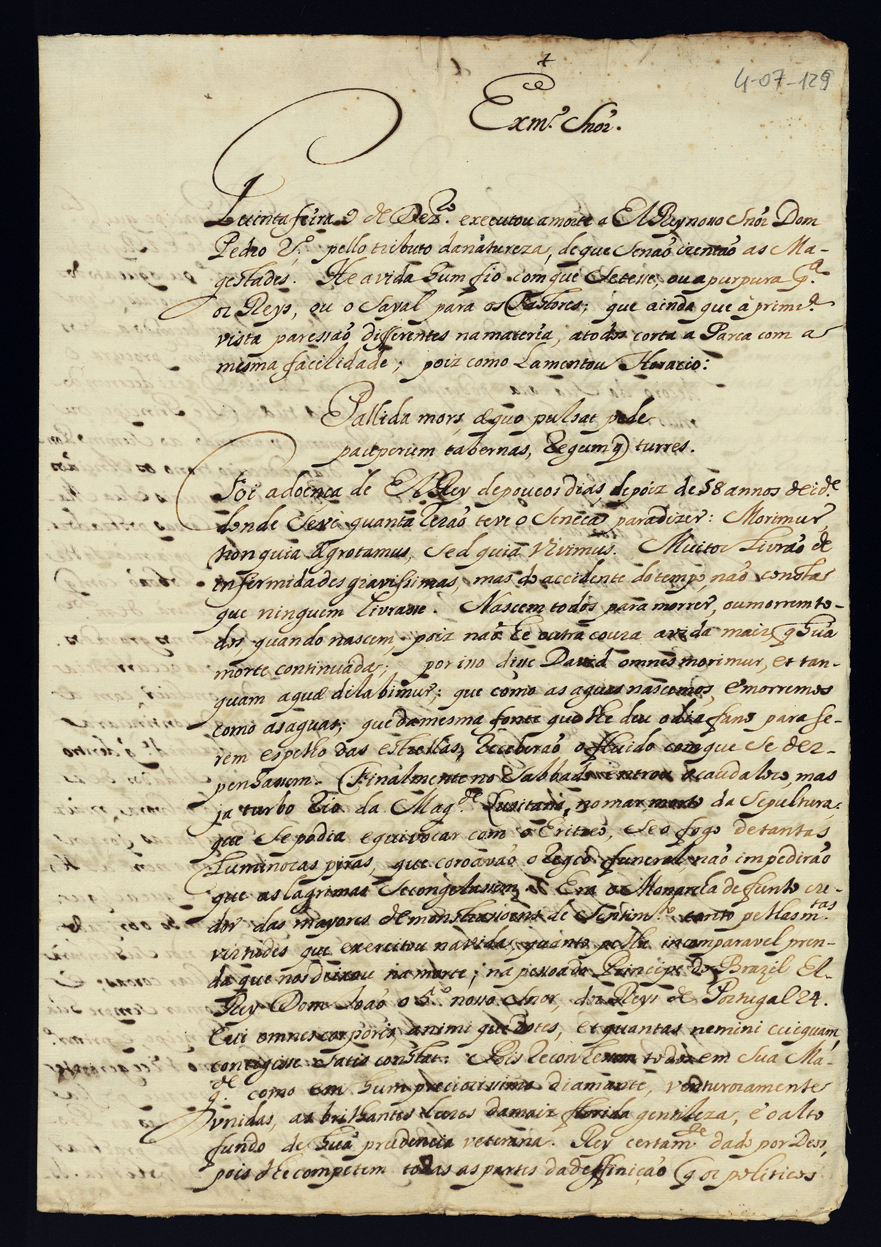 4-07-129
Exmº. Snõr.
Quinta feira 9 de Dezbro. executou a morte a El Rey nosso Snõr Dom
Pedro 2º. pello tributo da natureza, de que senão izentão as Ma-
gestades. He a vida hum fio com que se tesse, ou a purpura pª.
os Reys, ou o sayal para os Pastores; que ainda que à primrª.
vista paressão differentes na materia, a todos corta a Parca com a
mesma facilidade; poiz como Lamentou Horacio:
Pallida mors æquo pulsat pede
pauperum tabernas, Regumq) turres.
Foi a doença de El Rey de poucos dias depoiz de 58 annos de idᵉ
donde se vê quanta rezão teve o Seneca para dizer: Morimur,
non quia ægrotamus, sed quia vivimus. Muitos Livrão de
infermidades gravissimas, mas do accidente do tempo não consta
que ninguem livrasse. Nascem todos para morrer, ou morrem to-
dos quando nascem poiz não he outra couza a vida maiz q̃ hũa
morte continuada; por isso disse David omnes morimur, et tan-
quam aquæ dilabimur; que como as aguas nascemos, e morremos
como as aguas; que da mesma fonte que lhe deu o diafano para se-
rem espelho das estrellas, receberão o fluido com que se dez-
penhassem. Finalmente no Sabbado entrou o caudalozo, mas
ja turbo Rio da Magᵈᵉ Luzitana, no mar morto da sepultura,
que se podia equivocar com o Eritreo, se o fogo de tantas
Luminozas pyras, que coroavão o Regio funeral não impedirão
que as lagrimas se congelassem. Era o Monarcha defunto cre-
dor das mayores demonstraçoens de sentimᵗᵒ. tanto pellas mᵗᵃˢ
virtudes que exercitou na vida, quanto pella incomparavel pren-
da que nos deixou na morte; na pessoa do Principe do Brazil El-
Rey Dom João o 5º. nosso Snõr, dos Reys de Portugal 24.
Cui omnes corporis, animi que dotes, et quantas nemini cuiquam
contigisse satis constat: Pois reconhecem todos em Sua Ma-
gᵈᵉ. como em hum preciozissimo diamante, venturozamente
unidas, as brilhantes luzes da maiz florida gentileza, e o alto
fundo de hũa prudencia veterana. Rey certamᵗᵉ dado por Deos,
pois lhe competem todas as partes da deffinição q̃ os politicos